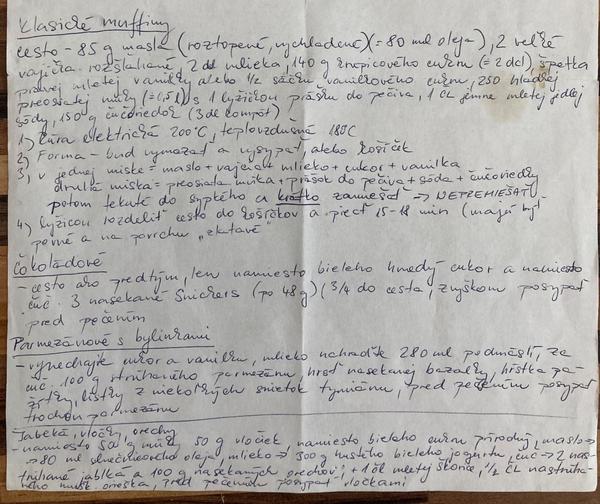 Klasické muffiny
cesto - 85 g masla (roztopené, vychladené) (= 80 ml oleja), 2 veľké
vajíčka rozšľahané, 2 dl mlieka, 140 g krupicového cukru (= 2 dcl), štipka
pravej mletej vanilky alebo 1/2 sáčku vanilkového cukru, 250 hladkej
preosiatej múky (= 0,5 l) s 1 lyžičkou prášku do pečiva, 1 ČL jemne mletej jedlej
sódy, 150 g čučoriedok (3 dcl kompót)
1) Rúra elektrická 200°C, teplovzdušná 180C
2) Forma - buď vymazať a vysypať alebo košíček
3) v jednej miske = maslo + vajcia + mlieko + cukor + vanilka
druhá miska = preosiata múka + prášok do pečiva + sóda + čučoriedky
potom tekuté do sypkého a krátko zamiešať → NEPREMIEŠAŤ
4) lyžicou rozdeliť cesto do košíčkov a piecť 15-18 min (majú byť
pevné a na povrchu „zlatavé"
Čokoládové
- cesto ako predtým, len namiesto bieleho hnedý cukor a namiesto
čuč. 3 nasekané Snickers (po 48 g) (3/4 do cesta, zvyškom posypať
pred pečením
Parmezánové s bylinkami
- vynechajte cukor a vanilku, mlieko nahradíte 280 ml podmaslí, za
čuč. 100 g strúhaného parmezánu, hrsť nasekanej bazalky, hŕstka pa-
žítky, lístky z niekoľkých snietok tymiánu, pred pečením posypať
trochou parmezánu
Jabĺká, vločky, orechy
- namiesto 50 g múky, 50 g vločiek, namiesto bieleho cukru prírodný, maslo →
→ 80 ml slnečnicového oleja, mlieko → 300 g hustého bieleho jogurtu, čuč → 2 nas-
trúhané jablká a 100 g nasekaných orechov, + 1 čl mletej škorice, 1/2 ČL nastrúha-
ného mušk. orieška, pred pečením posypať vločkami